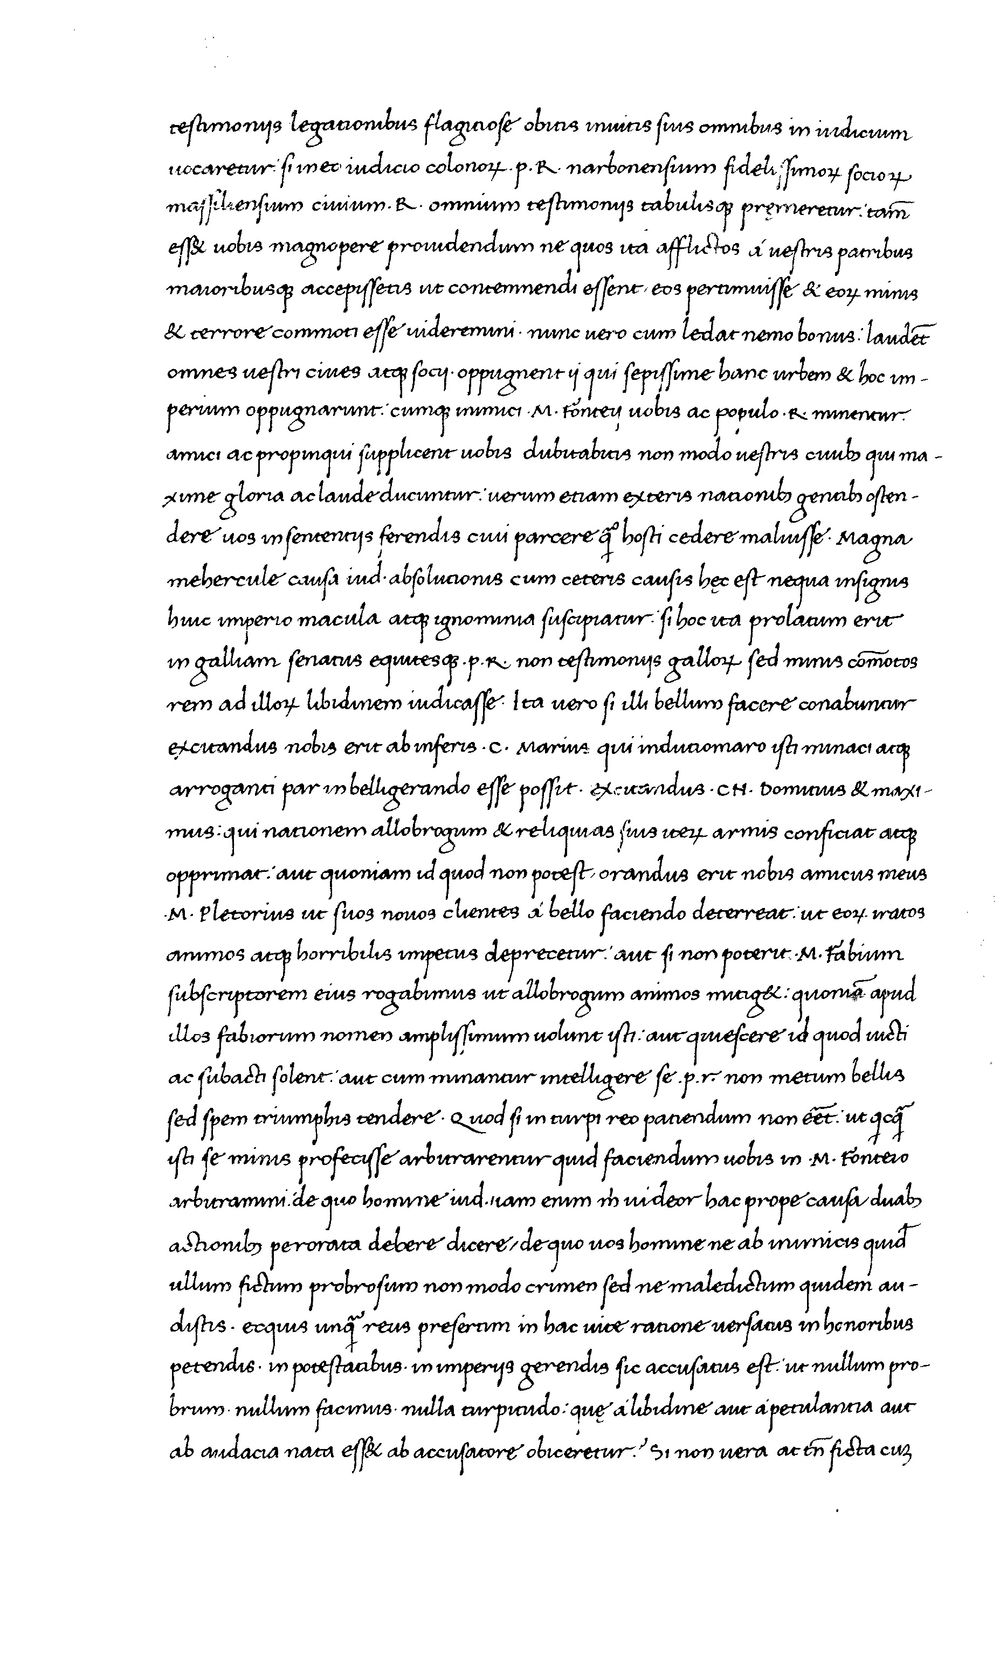 testimoniis legationibus flagitiose obitis inuitis suis omnibus in iudicium
uocaretur: si in eo iudicio colonoꝝ .p. R. narbonensium fidelissimoꝝ socioꝝ
massiliensium ciuium. R. omnium testimoniis tabulisqꝫ pręmeretur: tam̄
ess& uobis magnopere prouidendum ne quos ita afflictos á uestris patribus
maioribusqꝫ accepissetis ut contemnendi essent, eos pertimuisse & eoꝝ minis
& terrore commoti esse uideremini. nunc vero cum ledat nemo bonus: laudēt
omnes uestri ciues atqꝫ socii. oppugnent ii qui sepissime hanc urbem & hoc im-
perium oppugnarunt: cumqꝫ inimici .M. Fōnteii uobis ac populo .R. minentur:
amici ac propinqui supplicent uobis dubitabitis non modo uestris ciuibꝫ qui ma-
xime gloria ac laude ducuntur: uerum etiam exteris nationibꝫ gentibꝫ osten-
dere uos in sententiis ferendis ciui parcere q̄ꝫ hosti cedere maluisse. Magna
mehercule causa iud. absolutionis cum ceteris causis hęc est nequa insignis
huic imperio macula atqꝫ ignominia suscipiatur: si hoc ita prolatum erit
in galliam senatus equitesqꝫ .p. R. non testimoniis galloꝝ sed minis cōmotos
rem ad illoꝝ libidinem iudicasse. Ita vero si illi bellum facere conabuntur
excitandus nobis erit ab inferis .C. Marius qui indutiomaro isti minaci atqꝫ
arroganti par in belligerando esse possit. excitandus .CN. Domitius & maxi-
mus: qui nationem allobrogum & reliquias suis iteꝝ armis conficiat atqꝫ
opprimat: aut quoniam id quod non potest, orandus erit nobis amicus meus
.M. Pletorius ut suos nouos clientes á bello faciendo deterreat: ut eoꝝ iratos
animos atqꝫ horribilis impetus deprecetur: aut si non poterit .M. Fabium
subscriptorem eius rogabimus ut allobrogum animos mitig&: quoniā apud
illos fabiorum nomen amplissimum uolunt isti: aut quiescere id quod uicti
ac subacti solent: aut cum minantur intelligere se .p. r. non metum bellis
sed spem triumphis tendere. Quod si in turpi reo patiendum non éēt: ut qͥcq̄
isti se minis profecisse arbitrarentur quid faciendum uobis in .M. Fonteio
arbitramini: de quo homine iud. iam enim m̄ uideor hac prope causa duabꝫ
actionibꝫ perorata debere dicere, de quo uos homine ne ab inimicis quid̄
ullum fictum probrosum non modo crimen sed ne maledictum quidem au-
distis. ecquis unq̄ꝫ reus presertim in hac uite ratione uersatus in honoribus
petendis. in potestatibus. in imperiis gerendis sic accusatus est: ut nullum pro-
brum. nullum facinus. nulla turpitudo: quę á libidine aut á petulantia aut
ab audacia nata ess& ab accusatore obiceretur? Si non uera at tn̄ ficta cuꝫ